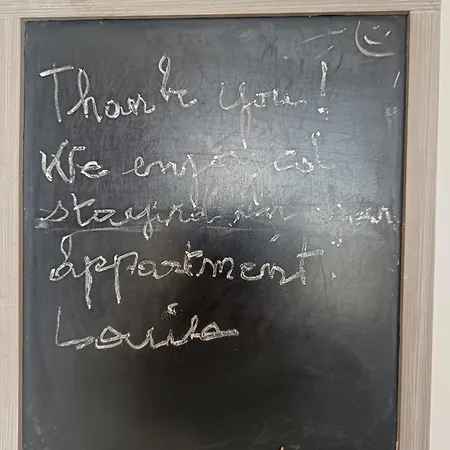 Thank you!
We enjoyed
staying in your
appartment.
Louise